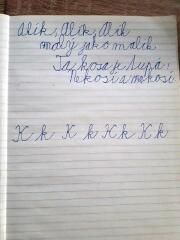 Alik, Alik, Alik
malý jako malík
Ta kosa je tupa,
Nekosi a nekosi
K k K k K k K k